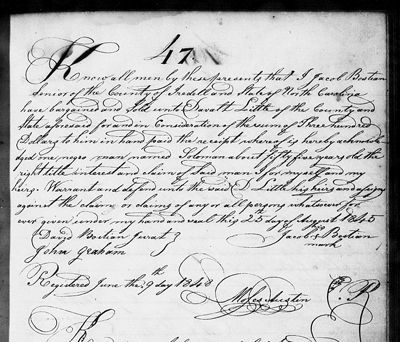 47
Know all men by these presents that I Jacob Bostian
Senior of the County of Iredell and State of North Carolina
have bargained and Sold unto Little of the County and
State aforesaid for and in Consideration of the sum of Three hundred
Dollars to him in hand paid the receipt whereof is hereby acknowle
dged one negro man named Soloman about fifty five years old the
right title interest and claim of said man I for myself and my
heirs Warrant and defend unto the said Little his heirs and assigns
against the claim or claims of any or all persons whatsoever for
ever given under my hand and seal this 25th day of August 1845
David Bostian Jurat } Jacob Bostian
John Graham mark
Registered June the 9th day 1848
R
K